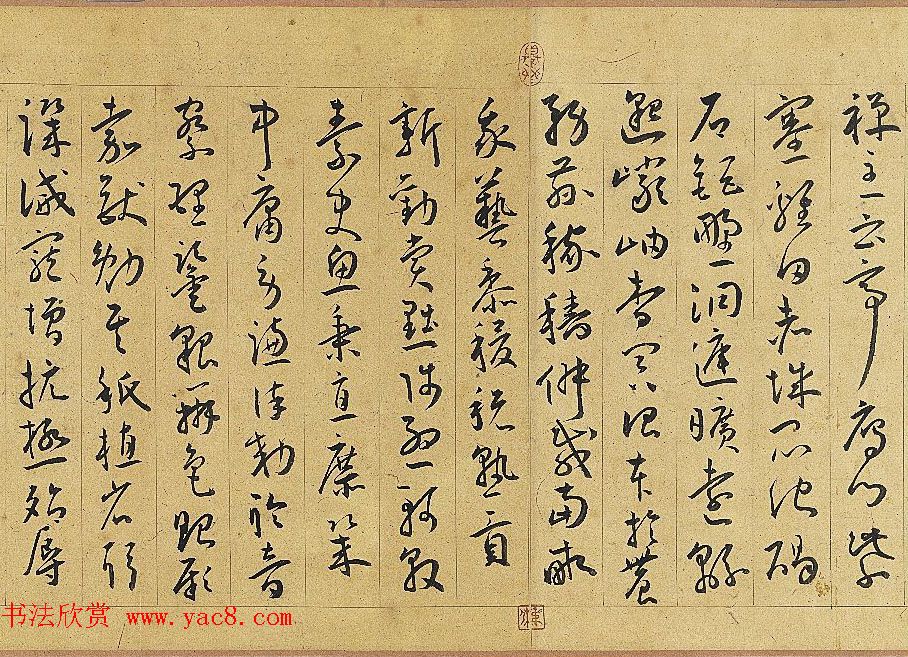 禪主云亭鴈門紫
塞雞田赤城昆池碣
石鉅野洞庭曠遠緜
邈巖岫杳冥治本於農
務茲稼穡俶載南畝
我藝黍稷稅熟貢
新勸賞黜陟孟軻敦
素史魚秉直庶幾
中庸勞謙謹勅聆音
察理鑒貌辨色貽厥
嘉猷勉其祗植省躬
譏誡寵增抗極殆辱
书法欣赏 www.yac8.com